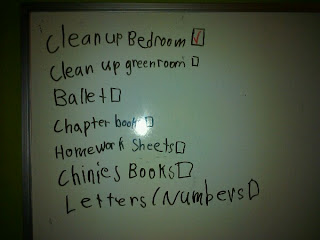 Clean up Bedroom ☑
Clean up greenroom ☐
Ballet ☐
Chapter books ☐
Homework Sheets ☐
Chinies Books ☐
Letters/Numbers ☐